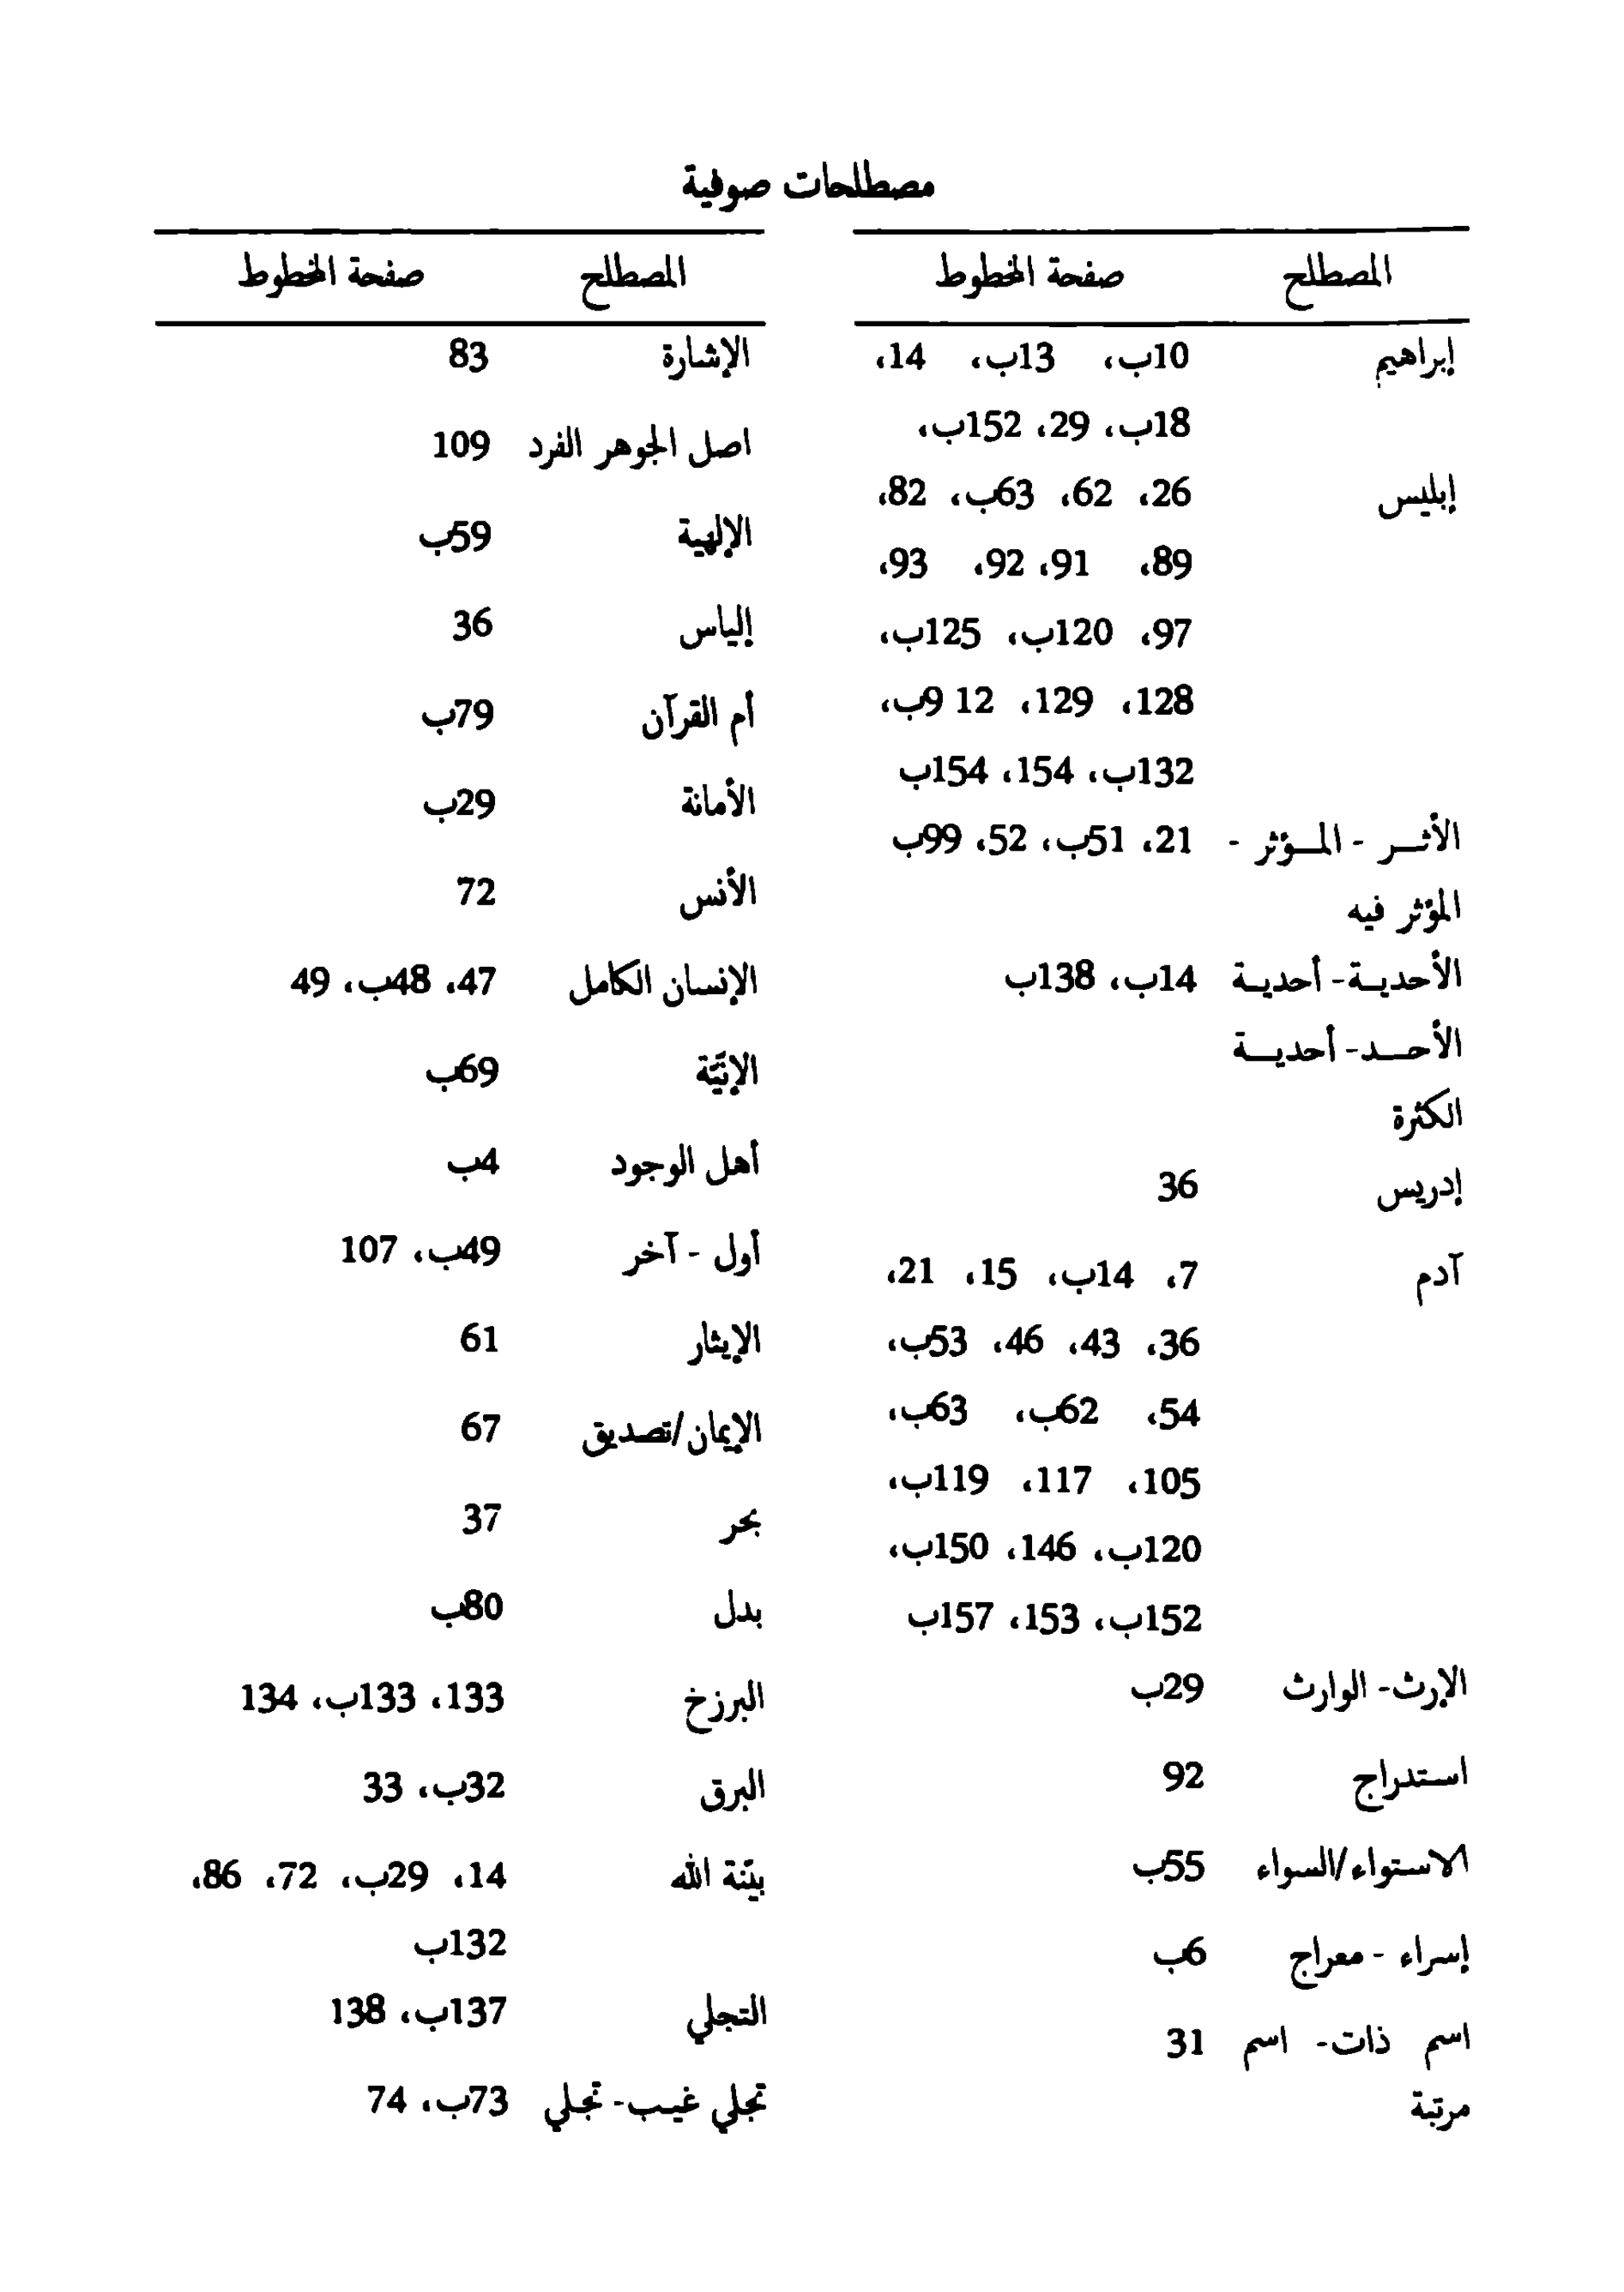 مصطلحات صوفية
المصطلح صفحة المخطوط
إبراهيم 10ب، 13ب، 14،
18ب، 29، 152ب،
إبليس 26، 62، 63ب، 82،
89، 91، 92، 93،
97، 120ب، 125ب،
128، 129، 12 9ب،
132ب، 154، 154ب
الأثـر - المـؤثر - 21، 51ب، 52، 99ب
المؤثر فيه
الأحديـة- أحديـة 14ب، 138ب
الأحـد- أحديـة
الكثرة
إدريس 36
آدم 7، 14ب، 15، 21،
36، 43، 46، 53ب،
54، 62ب، 63ب،
105، 117، 119ب،
120ب، 146، 150ب،
152ب، 153، 157ب
الإرث- الوارث 29ب
استدراج 92
الاستواء/السواء 55ب
إسراء - معراج 6ب
اسم ذات- اسم 31
مرتبة
المصطلح صفحة المخطوط
الإشارة 83
اصل الجوهر الفرد 109
الإلهية 59ب
إلياس 36
أم القرآن 79ب
الأمانة 29ب
الأنس 72
الإنسان الكامل 47، 48ب، 49
الإنيّة 69ب
أهل الوجود 4ب
أول - آخر 49ب، 107
الإيثار 61
الإيمان/تصديق 67
بحر 37
بدل 80ب
البرزخ 133، 133ب، 134
البرق 32ب، 33
بيّنة الله 14، 29ب، 72، 86،
132ب
التجلي 137ب، 138
تجلي غيب- تجلي 73ب، 74